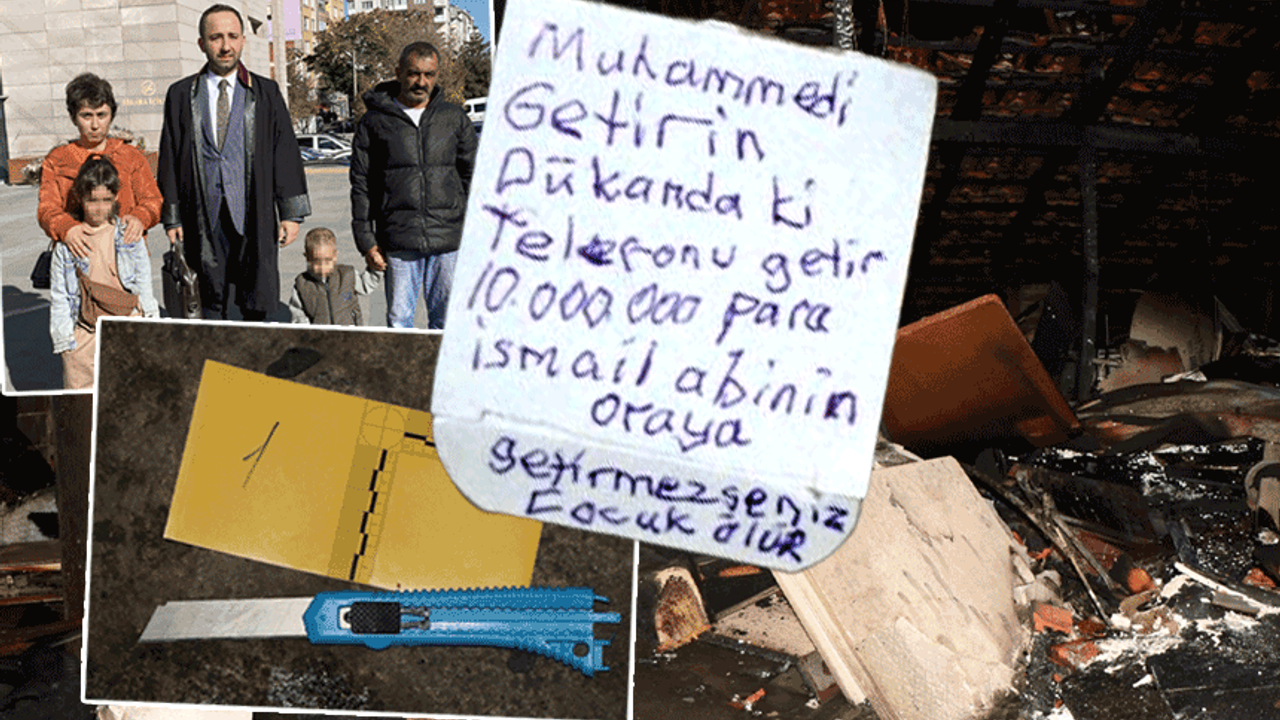 Muhammedi
Getirin
Dükanda ki
Telefonu getir
10.000.000 para
ismail abinin
oraya
getirmezseniz
Çocuk ölür
1